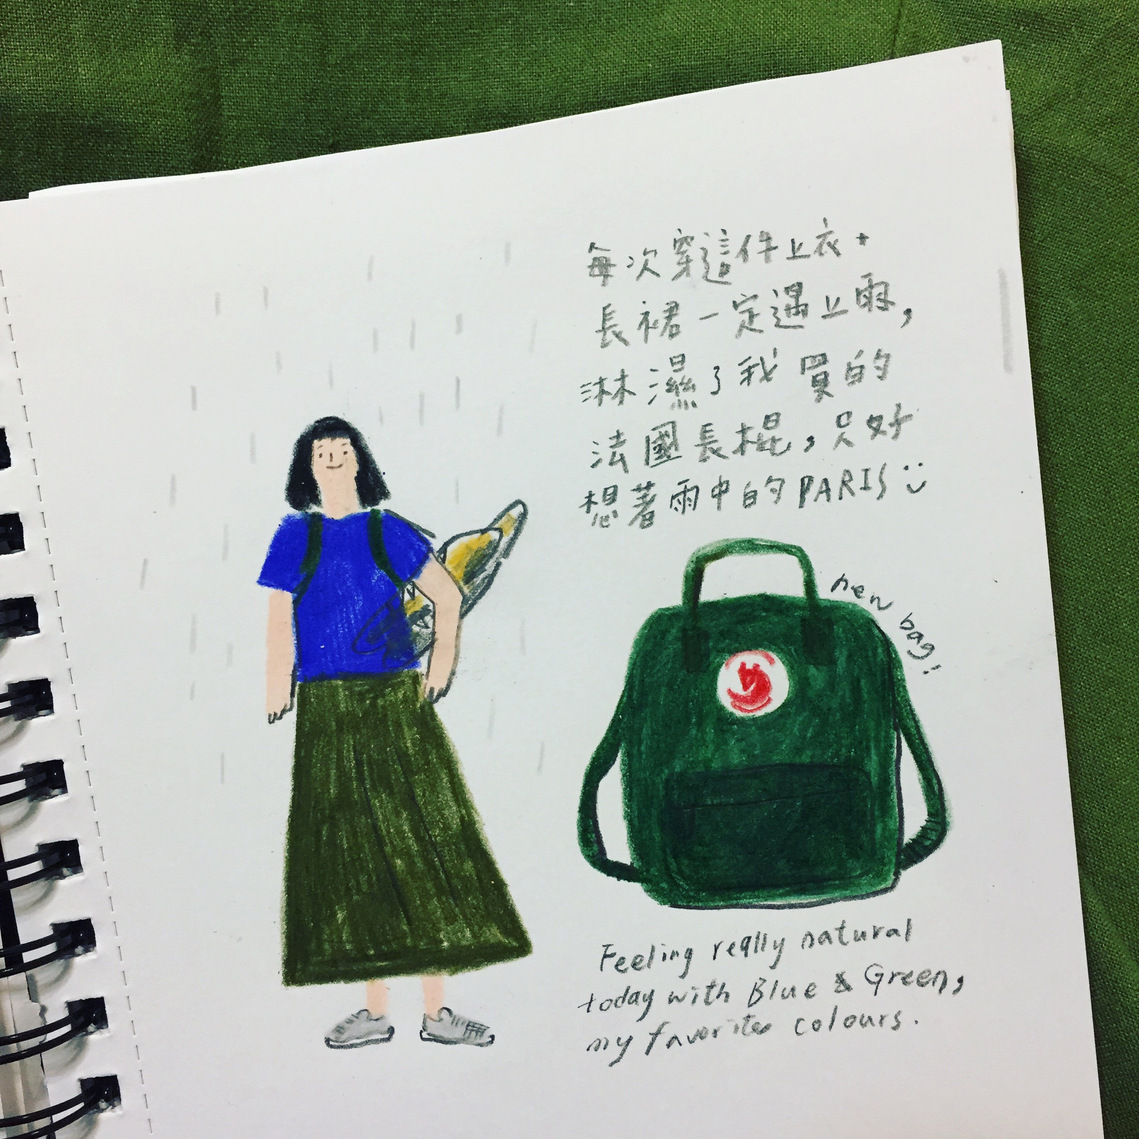 每次穿這件上衣+
長裙一定遇上雨,
淋濕了我買的
法國長棍,只好
想著雨中的PARIS
new bag!
Feeling really natural
today with Blue & Green,
my favorites colours.